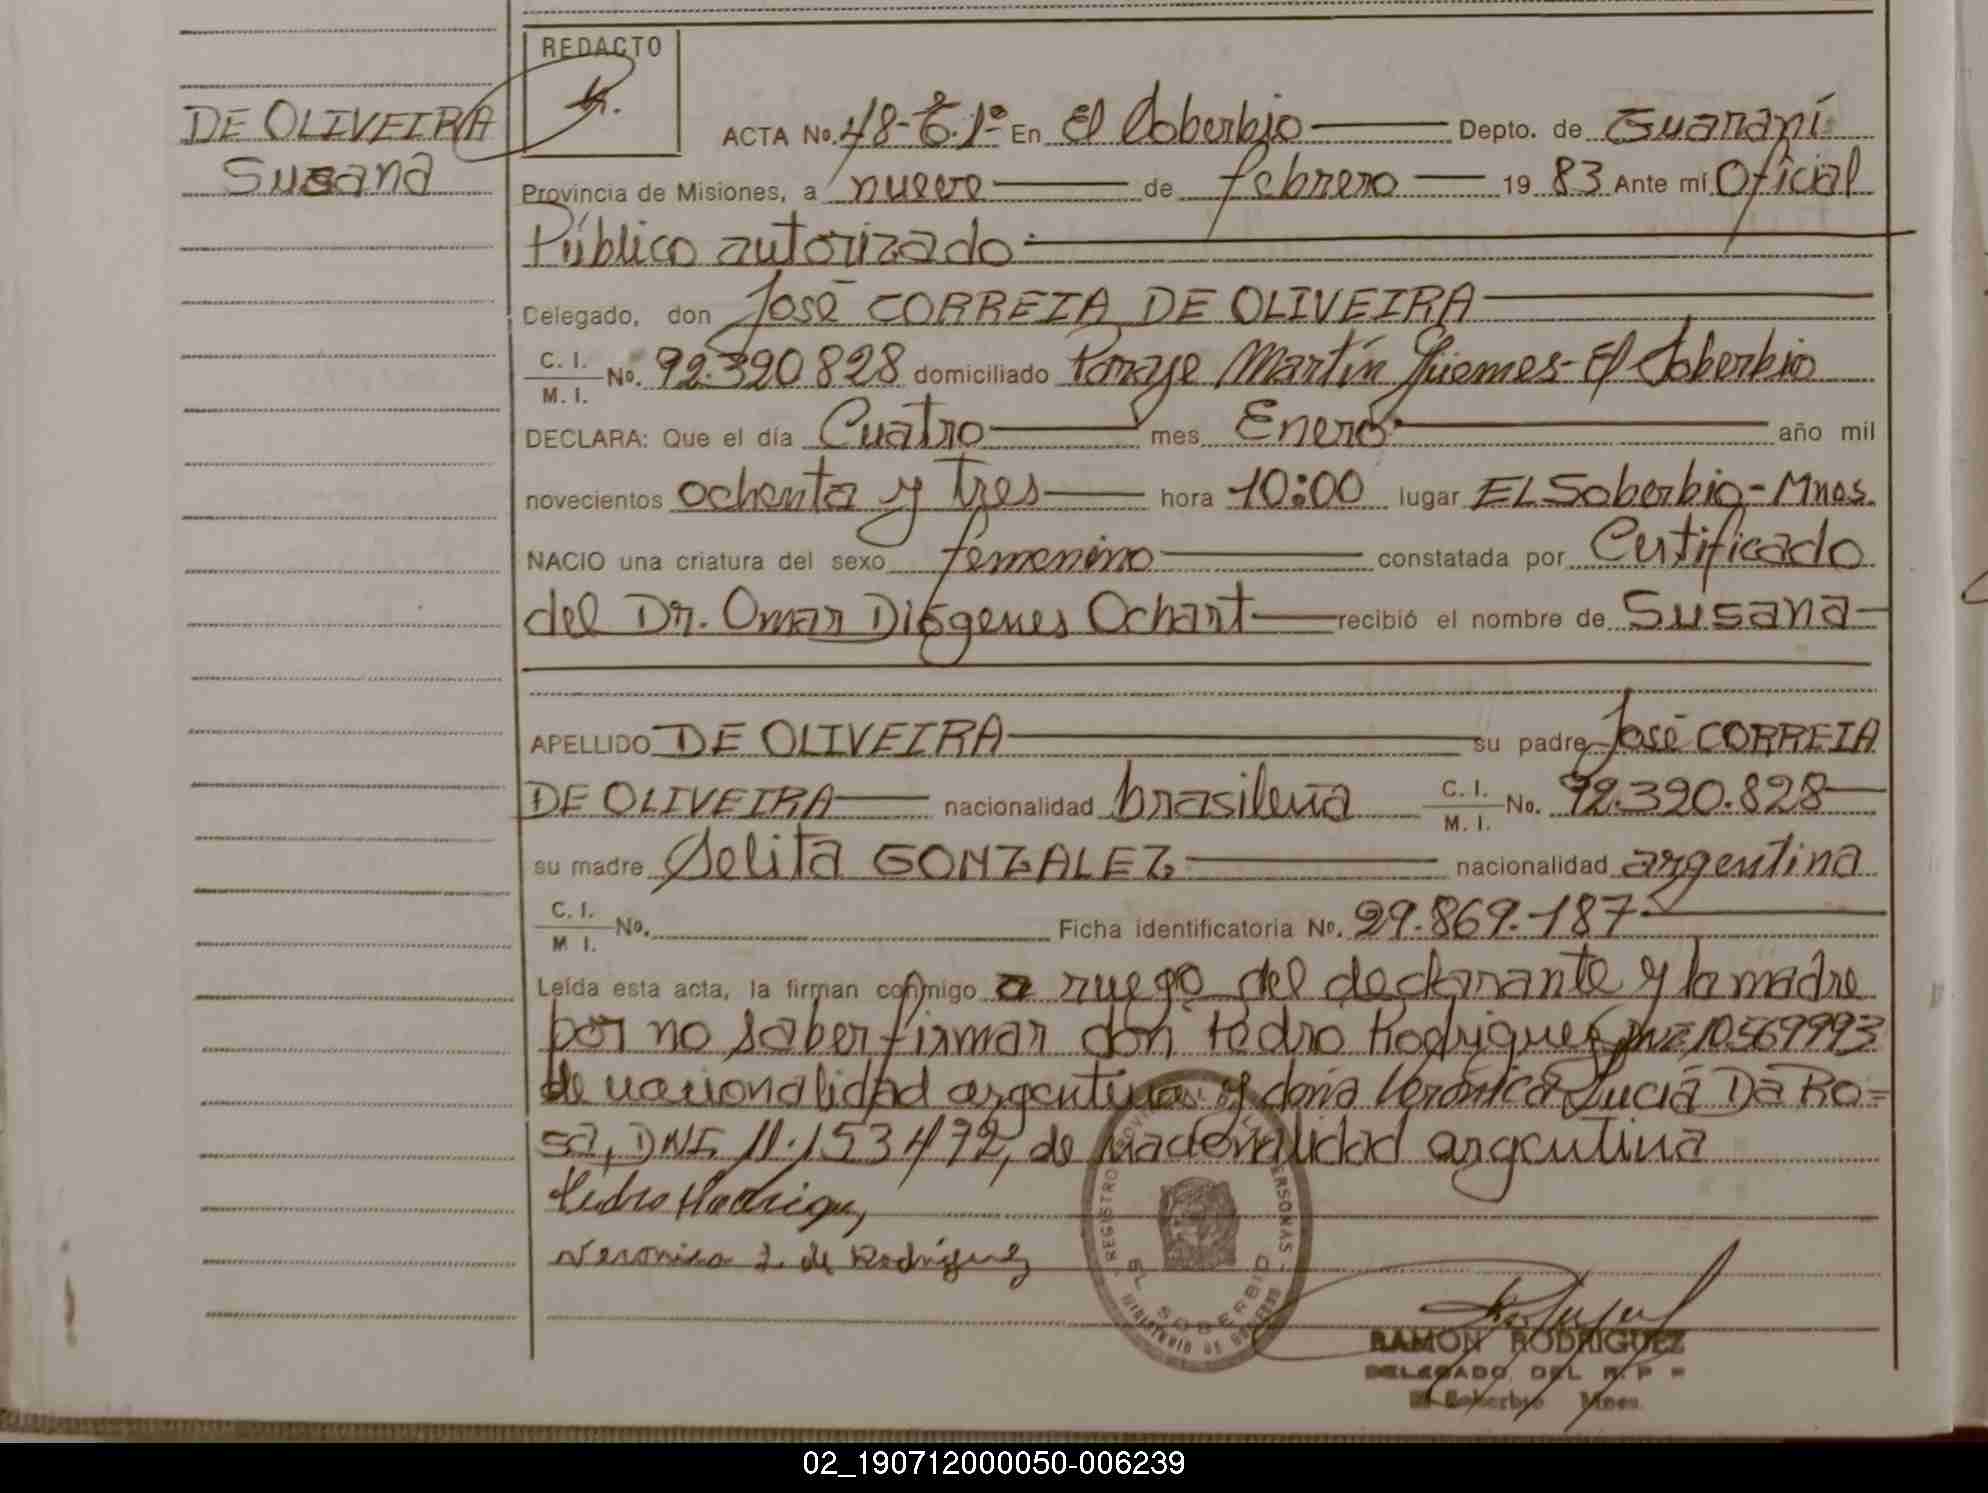 REDACTO
DE OLIVEIRA
Susana
ACTA No. 48-T.1º En El Soberbio Depto. de Guaraní
Provincia de Misiones, a nueve de febrero 19 83 Ante mí Oficial
Público autorizado
Delegado, don José CORREIA DE OLIVEIRA
C. I. M. I. No. 92.390.828 domiciliado Paraje Martín Güemes-El Soberbio
DECLARA: Que el día Cuatro mes Enero año mil
novecientos ochenta y tres hora 10:00 lugar EL Soberbio-Mnes.
NACIO una criatura del sexo femenino constatada por Certificado
del Dr. Omar Diógenes Ochart recibió el nombre de Susana
APELLIDO DE OLIVEIRA su padre José CORREIA
DE OLIVEIRA nacionalidad brasileña C. I. M. I. No. 92.390.828
su madre Selita GONZALEZ nacionalidad argentina
C. I. M I. No. Ficha identificatoria No. 29.869.187
Leída esta acta, la firman conmigo a ruego del declarante y la madre
por no saber firmar don Pedro Rodriguez 10569993
de nacionalidad argentina y doña Verónica Lucía Da Ro=
sa, DNI, 11.153472, de nacionalidad argentina
Pedro Rodriguez
Veronica L. de Rodriguez
REGISTRO PERSONAS
EL SOBERBIO
MINISTERIO DE GOBIERNO
RAMON RODRIGUEZ
DELEGADO DEL R. P. P
El Soberbio Mnes.
02_190712000050-006239